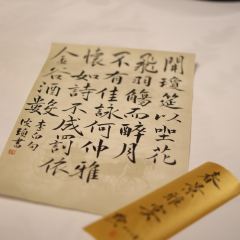 開瓊筵以坐花
飛羽觴而醉月
不有佳詠何伸雅
懷如詩不成罰依
金谷酒數
李白句
書
春景雅宴